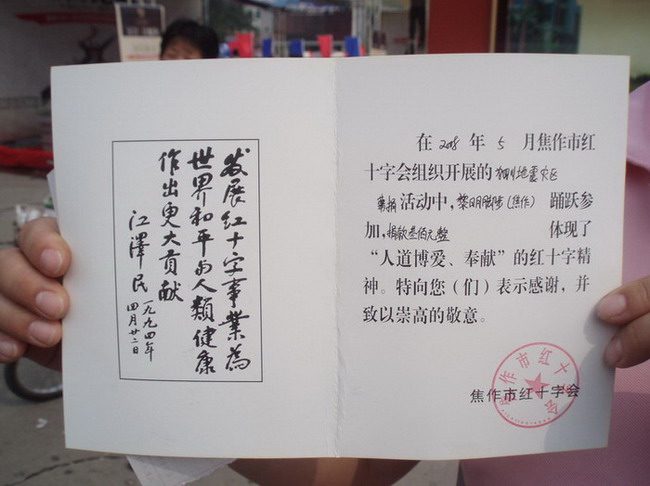 发展红十字事業為
世界和平与人類健康
作出更大貢献
江澤民 一九九四年
四月廿二日
在 2008 年 5 月焦作市红
十字会组织开展的 四川地震灾区
募捐 活动中，黎明 (焦作) 踊跃参
加，捐款叁佰元整 体现了
“人道博爱、奉献”的红十字精
神。特向您（们）表示感谢，并
致以崇高的敬意。
焦作市红十字会
焦作市红十字会